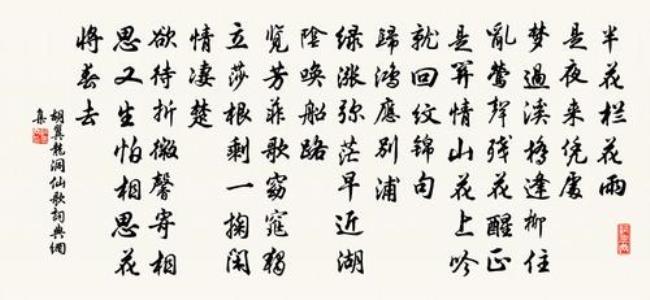 半花栏花雨
是夜来凭处
梦過溪橋逢柳住
亂莺聲残花醒正
是情山花上吟
就回纹锦句
歸鸿應别浦
绿涨弥茫早近湖
陰唤船路
覽芳菲歌窈窕獨
立莎根剩一掬闲
情凄楚
欲待折微馨寄相
思又生怕相思花
将春去
胡翼龍洞仙歌詞典網
集